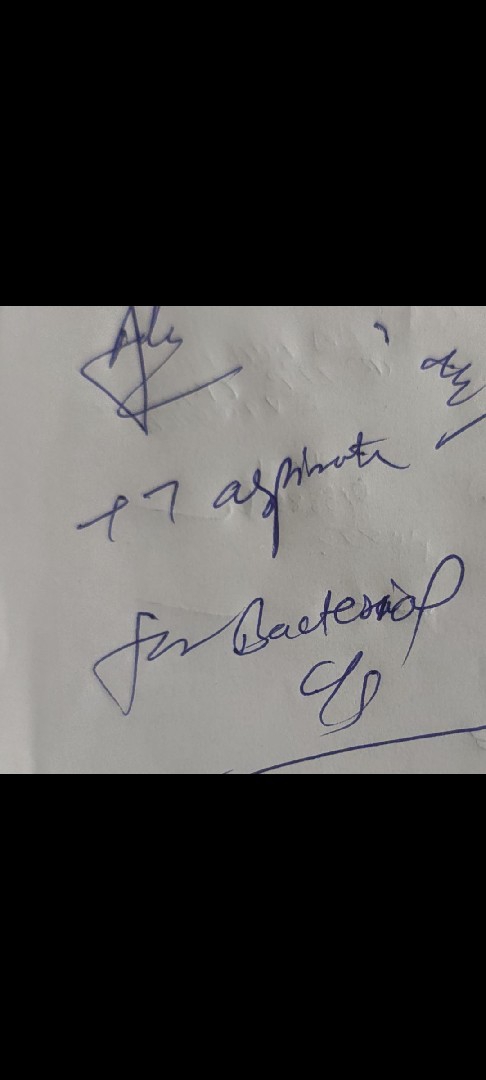 Adv
ET aspirate
for Bacterial
C/S